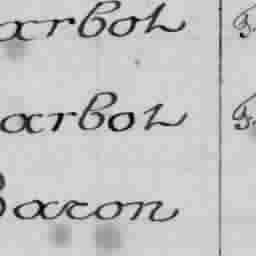 arbot
arbot
Baron